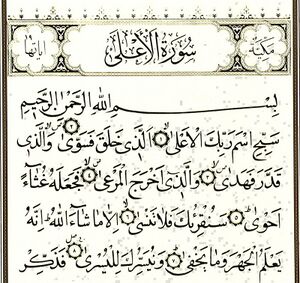 مكية سورة الأعلى آياتها
بِسْمِ اللهِ الرَّحْمٰنِ الرَّحِيمِ
سَبِّحِ اسْمَ رَبِّكَ الْأَعْلَى الَّذِي خَلَقَ فَسَوَّى وَالَّذِي
قَدَّرَ فَهَدَى وَالَّذِي أَخْرَجَ الْمَرْعَى فَجَعَلَهُ غُثَاءً
أَحْوَى سَنُقْرِئُكَ فَلَا تَنْسَى إِلَّا مَا شَاءَ اللهُ إِنَّهُ
يَعْلَمُ الْجَهْرَ وَمَا يَخْفَى وَنُيَسِّرُكَ لِلْيُسْرَى فَذَكِّرْ